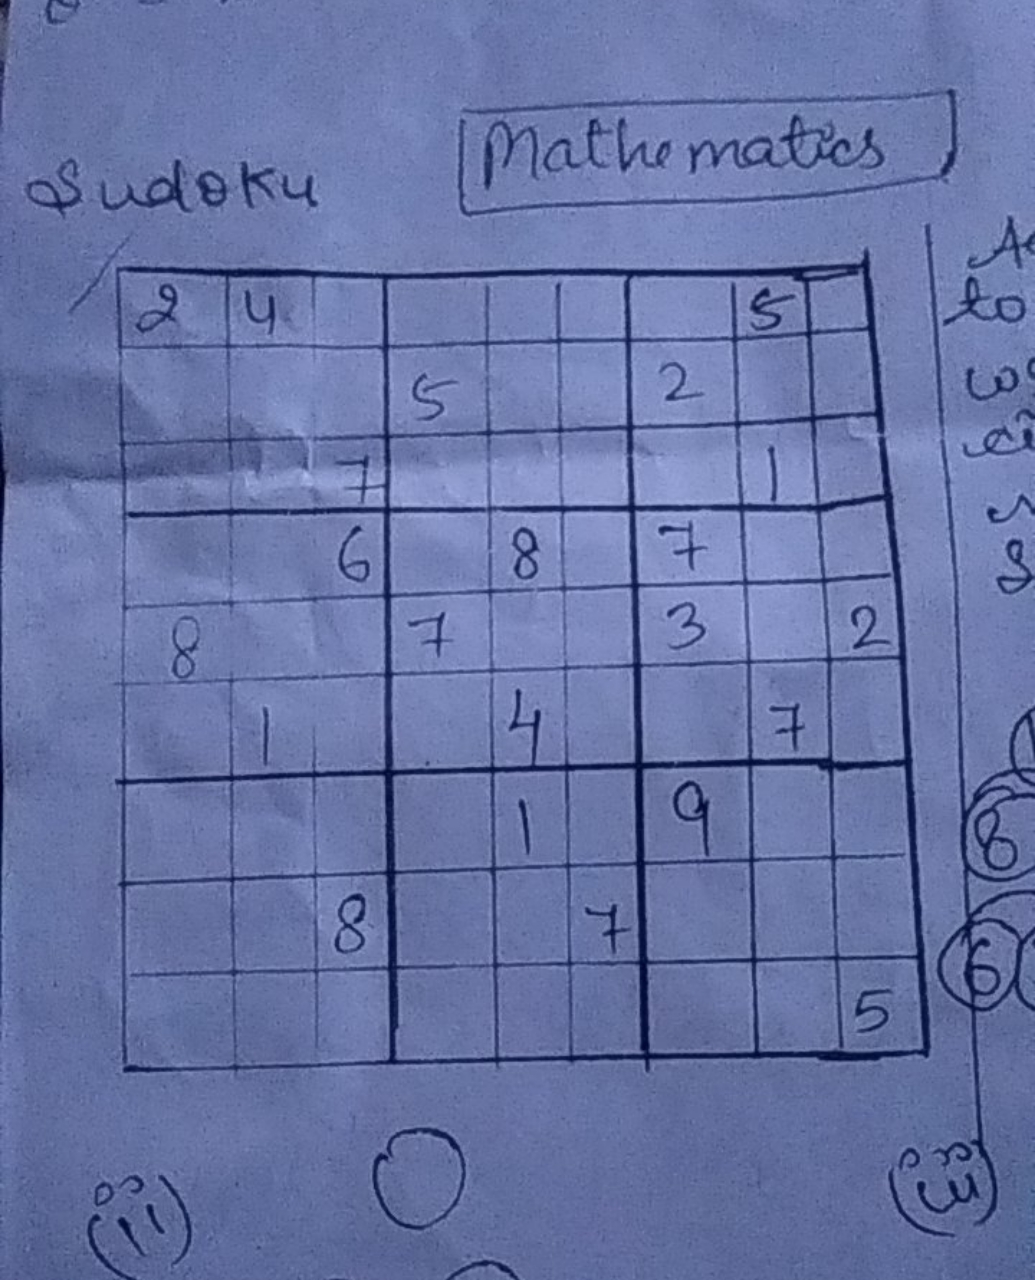 Mathematics
Sudoku
2 4 5
5 2
7 1
6 8 7
8 7 3 2
1 4 7
1 9
8 7
5
to
8
6
(ii)
(iii)